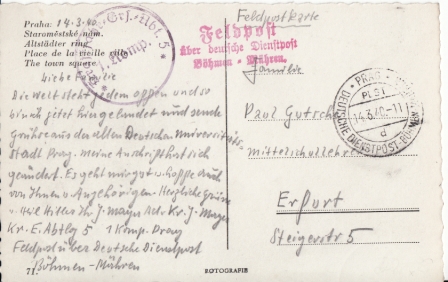 Praha: 14.3.40.
Staroměstské nám.
Altstädter ring
Place de la vieille ville
The town square
Ers. Abt. 5
1. Komp.
Feldpostkarte
Feldpost
über deutsche Dienstpost
Böhmen-Mähren.
Familie
PRAG
14.3.40.-11
d
DEUTSCHE DIENSTPOST BÖHMEN
Liebe Familie
Die Welt steht dem offen und so
bin ich jetzt hier gelandet und sende
Grüße aus der alten Deutschen Universitäts-
stadt Prag. Meine Anschrift hat sich
geändert. Es geht mir gut u. hoffe auch
von Ihnen u. Angehörigen. Herzliche Grüsse
u. Heil Hitler Ihr J. Mayr Kr. J. Mayr
Kr. E. Abtlg 5 1 Komp. Prag
Feldpost über Deutsche Dienstpost
Böhmen-Mähren
Paul Gutsche
Mittelschullehrer
Erfurt
Steigerstr 5
FOTOGRAFIE